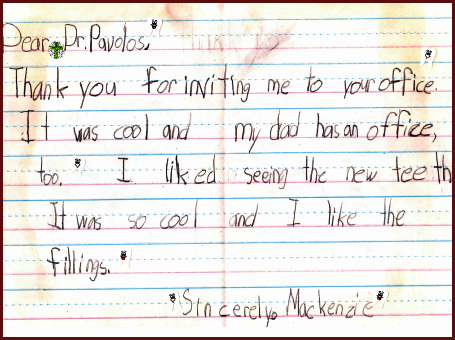 Dear Dr. Pavolos,
Thank you for inviting me to your office.
It was cool and my dad has an office,
too. I liked seeing the new teeth
It was so cool and I like the
fillings.
Sincerely, Mackenzie